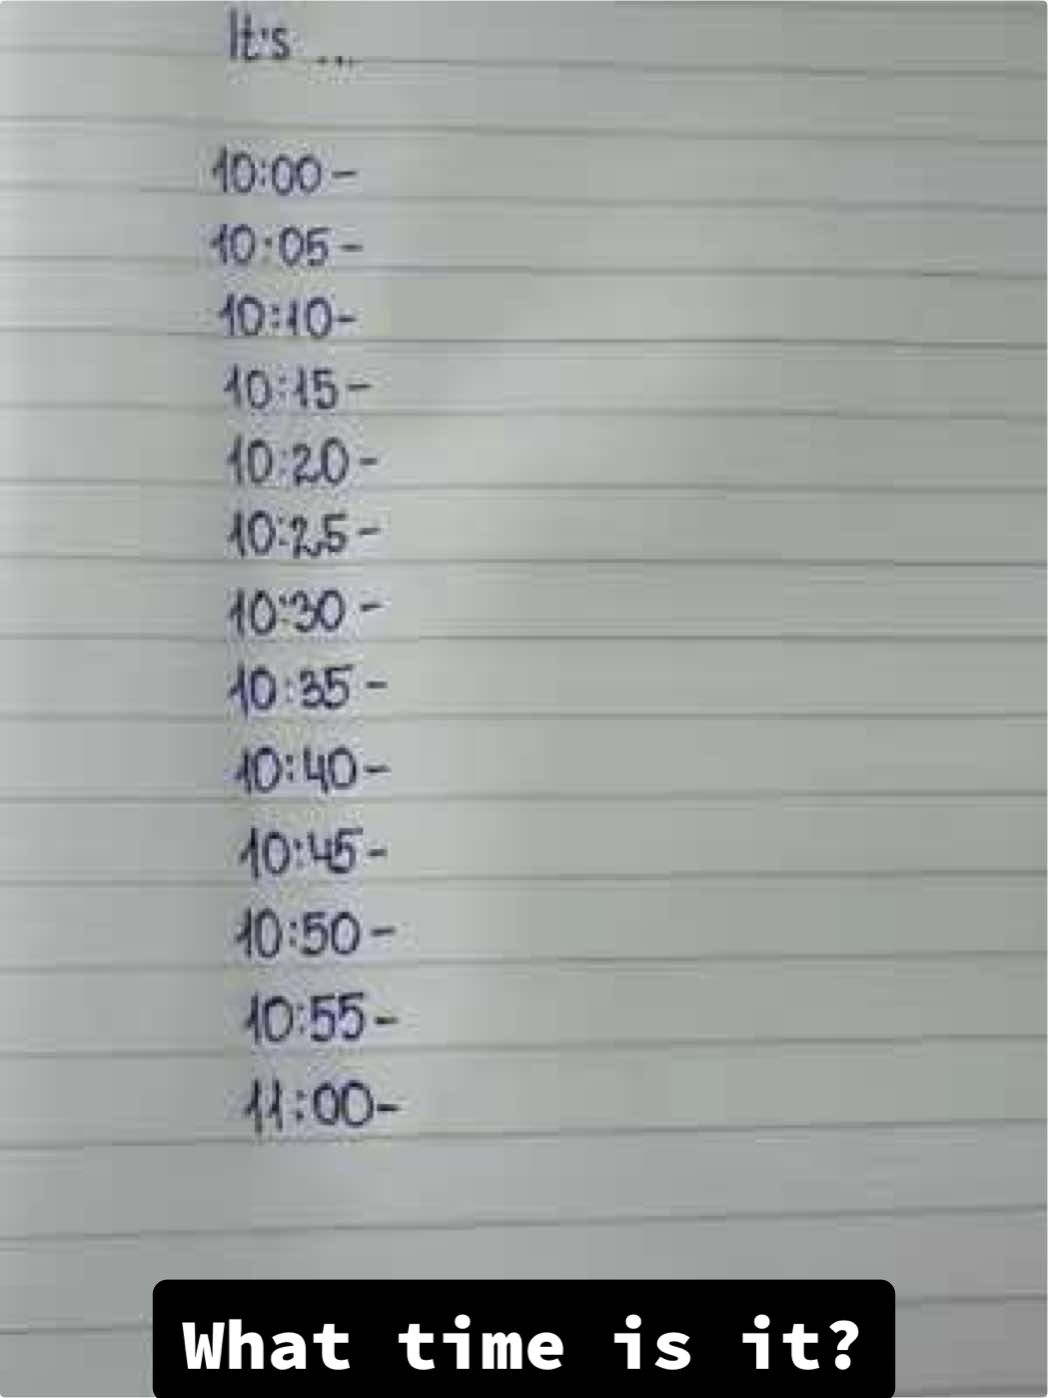 It's ...
10:00 -
10:05 -
10:10 -
10:15 -
10:20 -
10:25 -
10:30 -
10:35 -
10:40 -
10:45 -
10:50 -
10:55 -
11:00 -
What time is it?